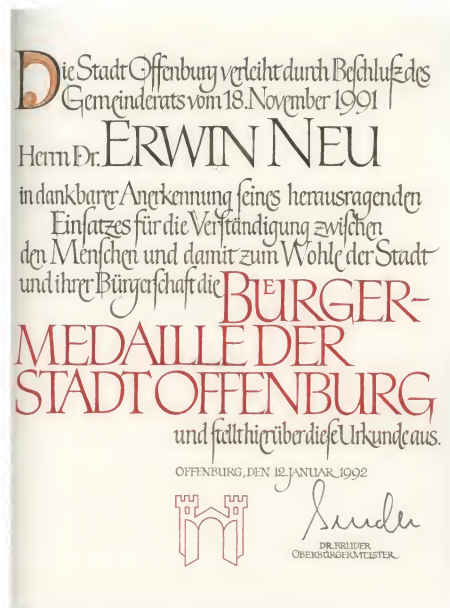 Die Stadt Offenburg verleiht durch Beſchluſz des
Gemeinderats vom 18. November 1991
Herrn Dr. ERWIN NEU
in dankbarer Anerkennung ſeines herausragenden
Einſatzes für die Verſtändigung zwiſchen
den Menſchen und damit zum Wohle der Stadt
und ihrer Bürgerſchaft die BUͤRGER-
MEDAILLE DER
STADT OFFENBURG
und ſtellt hierüber dieſe Urkunde aus.
OFFENBURG, DEN 12. JANUAR 1992
DR. BRUDER
OBERBÜRGERMEISTER